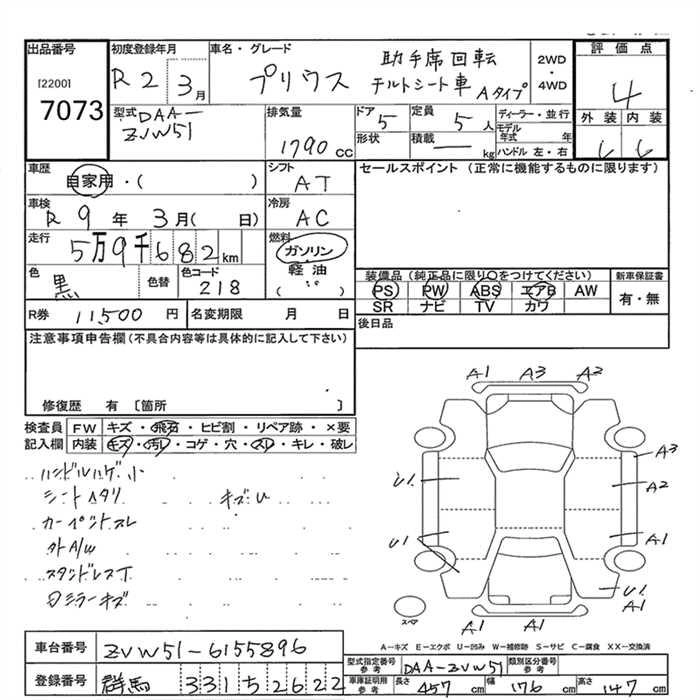 出品番号
[2200]
7073
初度登録年月
R2 3月
車名・グレード
プリウス
助手席回転
チルトシート車 Aタイプ
2WD
・
4WD
評価点
4
外装 内装
型式 DAA-
ZVW51
排気量
1790 cc
ドア 5
定員 5人
ディーラー・並行
モデル
年式 年
形状
積載 — kg
ハンドル 左・右
車歴
自家用・( )
シフト
AT
セールスポイント (正常に機能するものに限ります)
車検
R 9年 3月( 日)
冷房
AC
走行
5万9千682km
燃料
ガソリン
軽油
( 〃 )
色
黒
色替
色コード
218
装備品(純正品に限り○をつけてください)
PS PW ABS エアB AW
SR ナビ TV カワ
新車保証書
有・無
R券 11,500 円
名変期限 月 日
後日品
注意事項申告欄(不具合内容等は具体的に記入して下さい)
修復歴 有 〔箇所 〕
検査員
記入欄
FW キズ・飛石・ヒビ割・リペア跡・×要
内装 キズ・汚レ・コゲ・穴・スレ・キレ・破レ
ハンドルハゲ小
シートヘタリ キズU
カーペントスレ
外A/W
スタンドレスT
日ミラーキズ
A1 A3 A2
A3
U1 A2
U1 A1
U1
A1
A1 A1
スペア
A-キズ E-エクボ U-凹み W-補修跡 S-サビ C-腐食 XX-交換済
車台番号 ZVW51-6155896
登録番号 群馬 331 5 2622
型式指定番号
参考
DAA-ZVW51
類別区分番号
参考
車庫証明用
参考
長さ 457 cm 幅 176 cm 高さ 147 cm